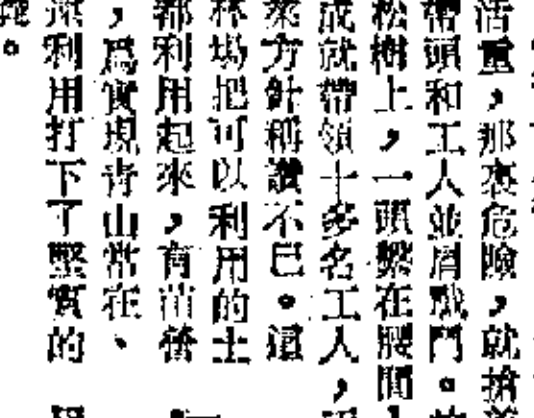 活重，那裏危險，就搶
帶頭和工人並肩戰鬥。
松樹上，一頭繫在腰間
成就帶領十多名工人，
采方針稱讚不已。這
林場把可以利用的土
都利用起來，育苗
，爲實現青山常在、
利用打下了堅實的
。